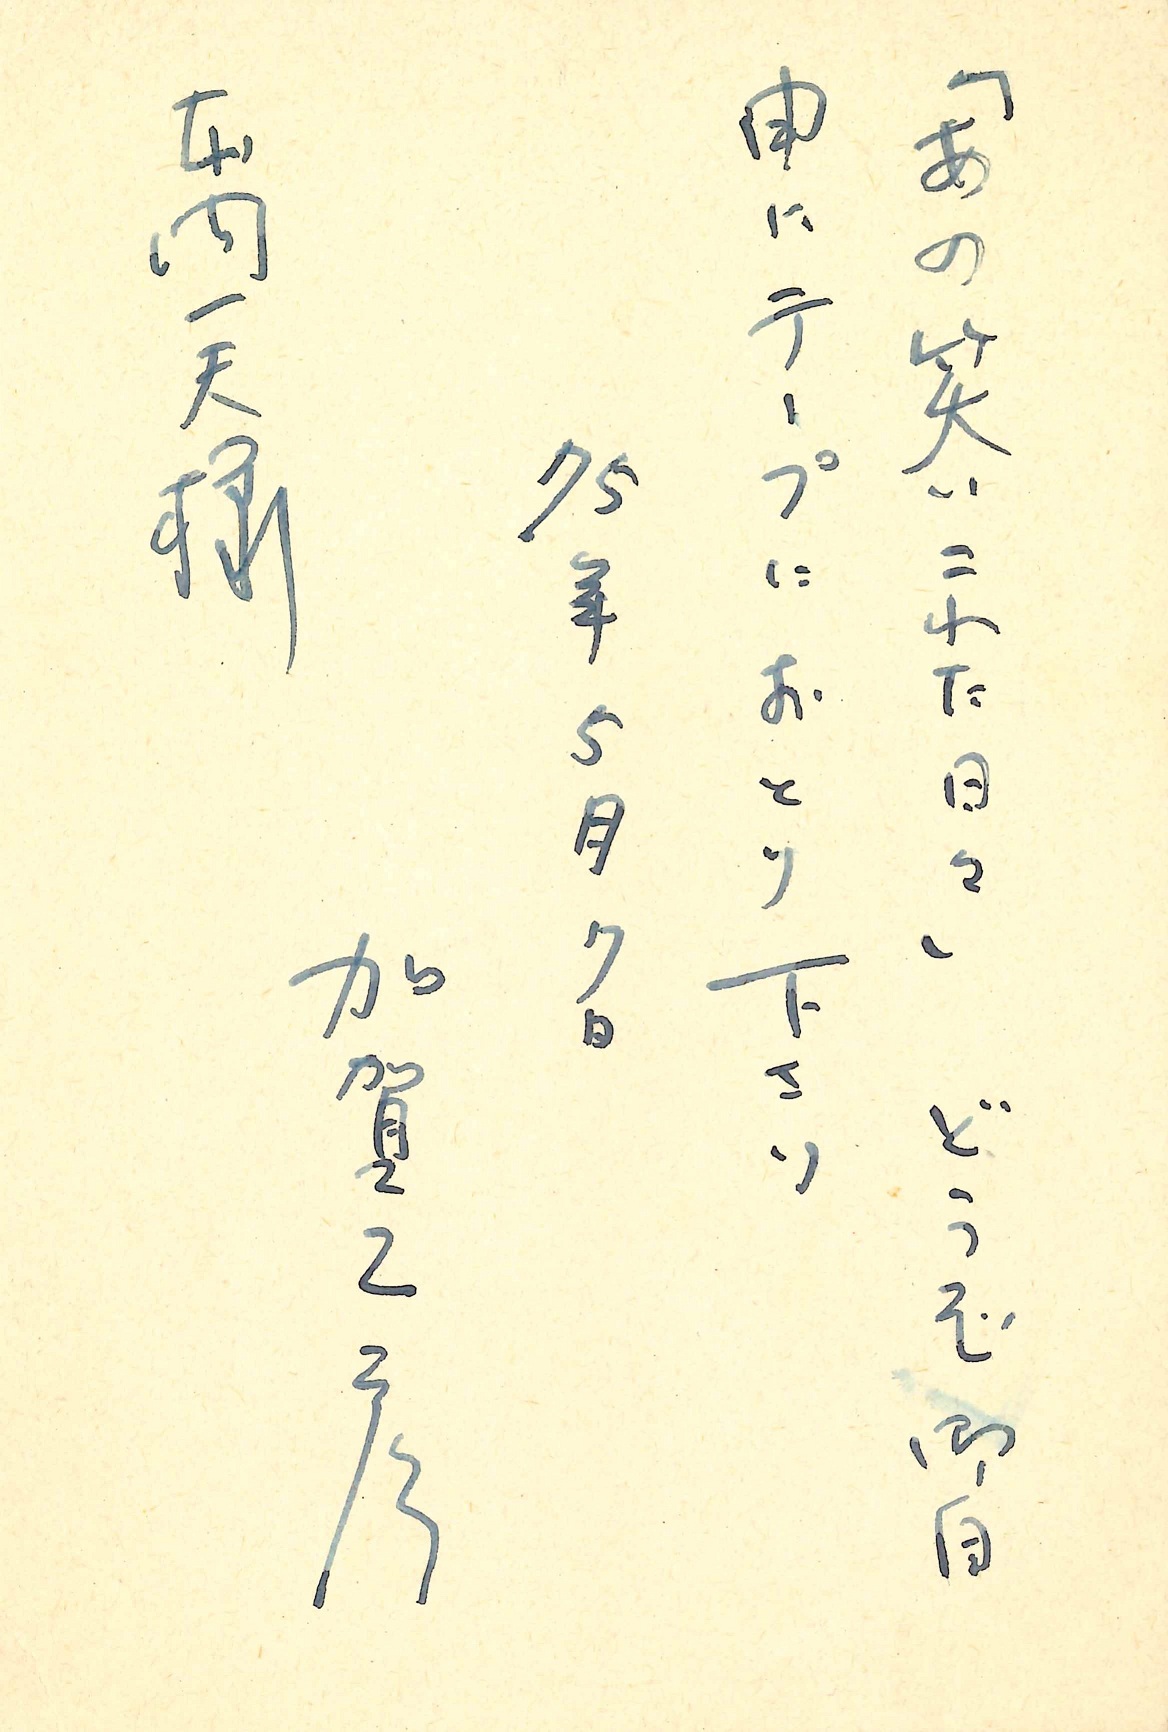 「あの笑いこけた日々」 どうぞ御自
由にテープにおとり下さい
75年5月7日
加賀乙彦
本間一夫様